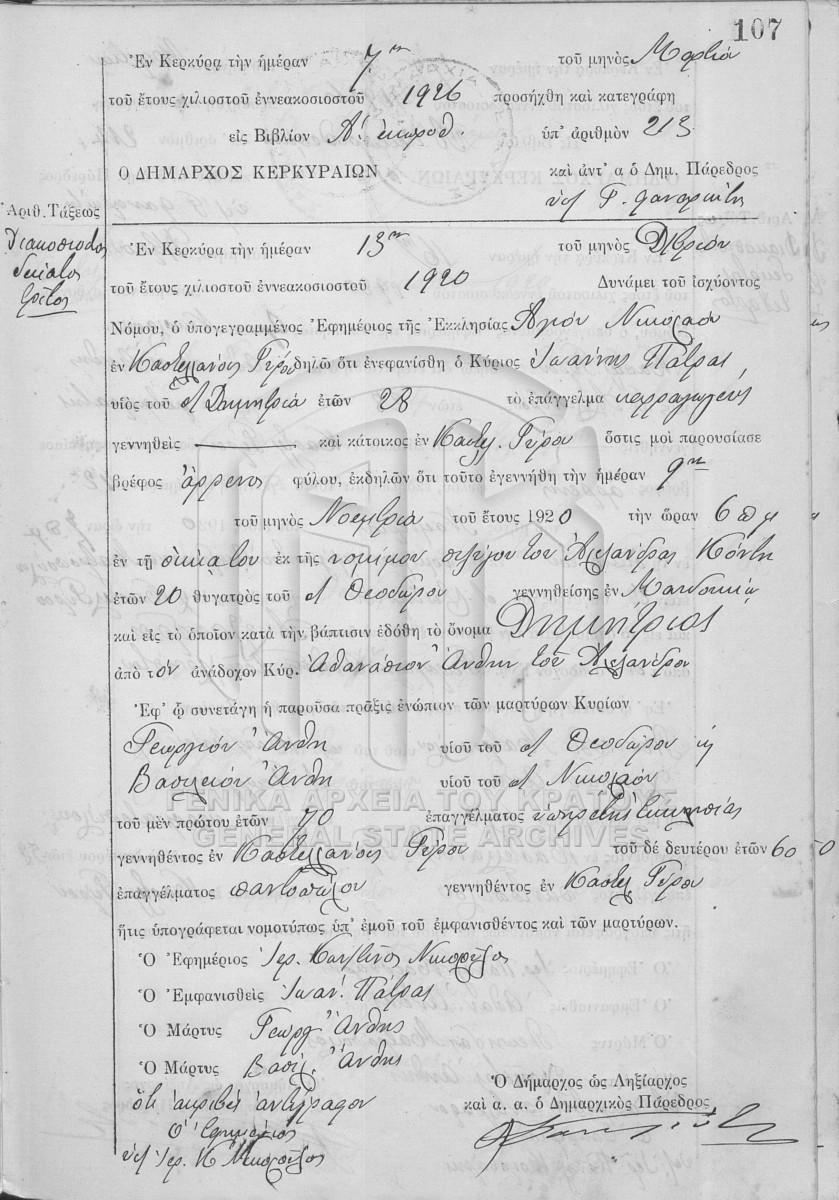 107
Ἐν Κερκύρᾳ τὴν ἡμέραν 7ην τοῦ μηνὸς Μαρτίου
τοῦ ἔτους χιλιοστοῦ ἐννεακοσιοστοῦ 1926 προσήχθη καὶ κατεγράφη
εἰς Βιβλίον Α΄. ὑπ' ἀριθμὸν 213
Ο ΔΗΜΑΡΧΟΣ ΚΕΡΚΥΡΑΙΩΝ καὶ ἀντ' α ὁ Δημ. Πάρεδρος
Ἀριθ. Τάξεως
Διακοσιοστος
δέκατος
τρίτος
Ἐν Κερκύρᾳ τὴν ἡμέραν 13ην τοῦ μηνὸς Δ/βρίου
τοῦ ἔτους χιλιοστοῦ ἐννεακοσιοστοῦ 1920 Δυνάμει τοῦ ἰσχύοντος
Νόμου, ὁ ὑπογεγραμμένος Ἐφημέριος τῆς Ἐκκλησίας Ἁγίου Νικολάου
ἐν Καστελλάνοις Γύρου δηλῶ ὅτι ἐνεφανίσθη ὁ Κύριος Ἰωάννης Πάτρας
υἱὸς τοῦ Δημητρίου ἐτῶν 28 τὸ ἐπάγγελμα καρραγωγεὺς
γεννηθεὶς καὶ κάτοικος ἐν Καστελ. Γύρου ὅστις μοὶ παρουσίασε
βρέφος ἄρρενος φύλου, ἐκδηλῶν ὅτι τοῦτο ἐγεννήθη τὴν ἡμέραν 9ην
τοῦ μηνὸς Νοεμβρίου τοῦ ἔτους 1920 τὴν ὥραν 6 π μ
ἐν τῇ οἰκίᾳ του ἐκ τῆς νομίμου συζύγου του Ἀλεξάνδρας Κόντη
ἐτῶν 20 θυγατρὸς τοῦ Θεοδώρου γεννηθείσης ἐν
καὶ εἰς τὸ ὁποῖον κατὰ τὴν βάπτισιν ἐδόθη τὸ ὄνομα Δημήτριος
ἀπὸ τὸν ἀνάδοχον Κύρ. Ἀθανάσιον Ἄνθην τοῦ Ἀλεξάνδρου
Ἐφ' ᾧ συνετάγη ἡ παροῦσα πρᾶξις ἐνώπιον τῶν μαρτύρων Κυρίων
Γεωργίου Ἄνθη υἱοῦ τοῦ Θεοδώρου κ
Βασιλείου Ἄνθη υἱοῦ τοῦ Νικολάου
ΓΕΝΙΚΑ ΑΡΧΕΙΑ ΤΟΥ ΚΡΑΤΟΥΣ
τοῦ μὲν πρώτου ἐτῶν 70 ἐπαγγέλματος ὑπηρέτης ἐκκλησίας
GENERAL STATE ARCHIVES
γεννηθέντος ἐν Καστελλάνοις Γύρου τοῦ δὲ δευτέρου ἐτῶν 60
ἐπαγγέλματος παντοπώλου γεννηθέντος ἐν Καστελ Γύρου
ἥτις ὑπογράφεται νομοτύπως ὑπ' ἐμοῦ τοῦ ἐμφανισθέντος καὶ τῶν μαρτύρων.
Ὁ Ἐφημέριος Ἱερ.
Ὁ Ἐμφανισθεὶς Ἰωάν. Πάτρας
Ὁ Μάρτυς Γεώργ Ἄνθης
Ὁ Μάρτυς Βασίλ. Ἄνθης
Ὁ Δήμαρχος ὡς Ληξίαρχος
καὶ α. α. ὁ Δημαρχικὸς Πάρεδρος
ὅτι ἀκριβὲς ἀντίγραφον
Ὁ Ἐφημέριος